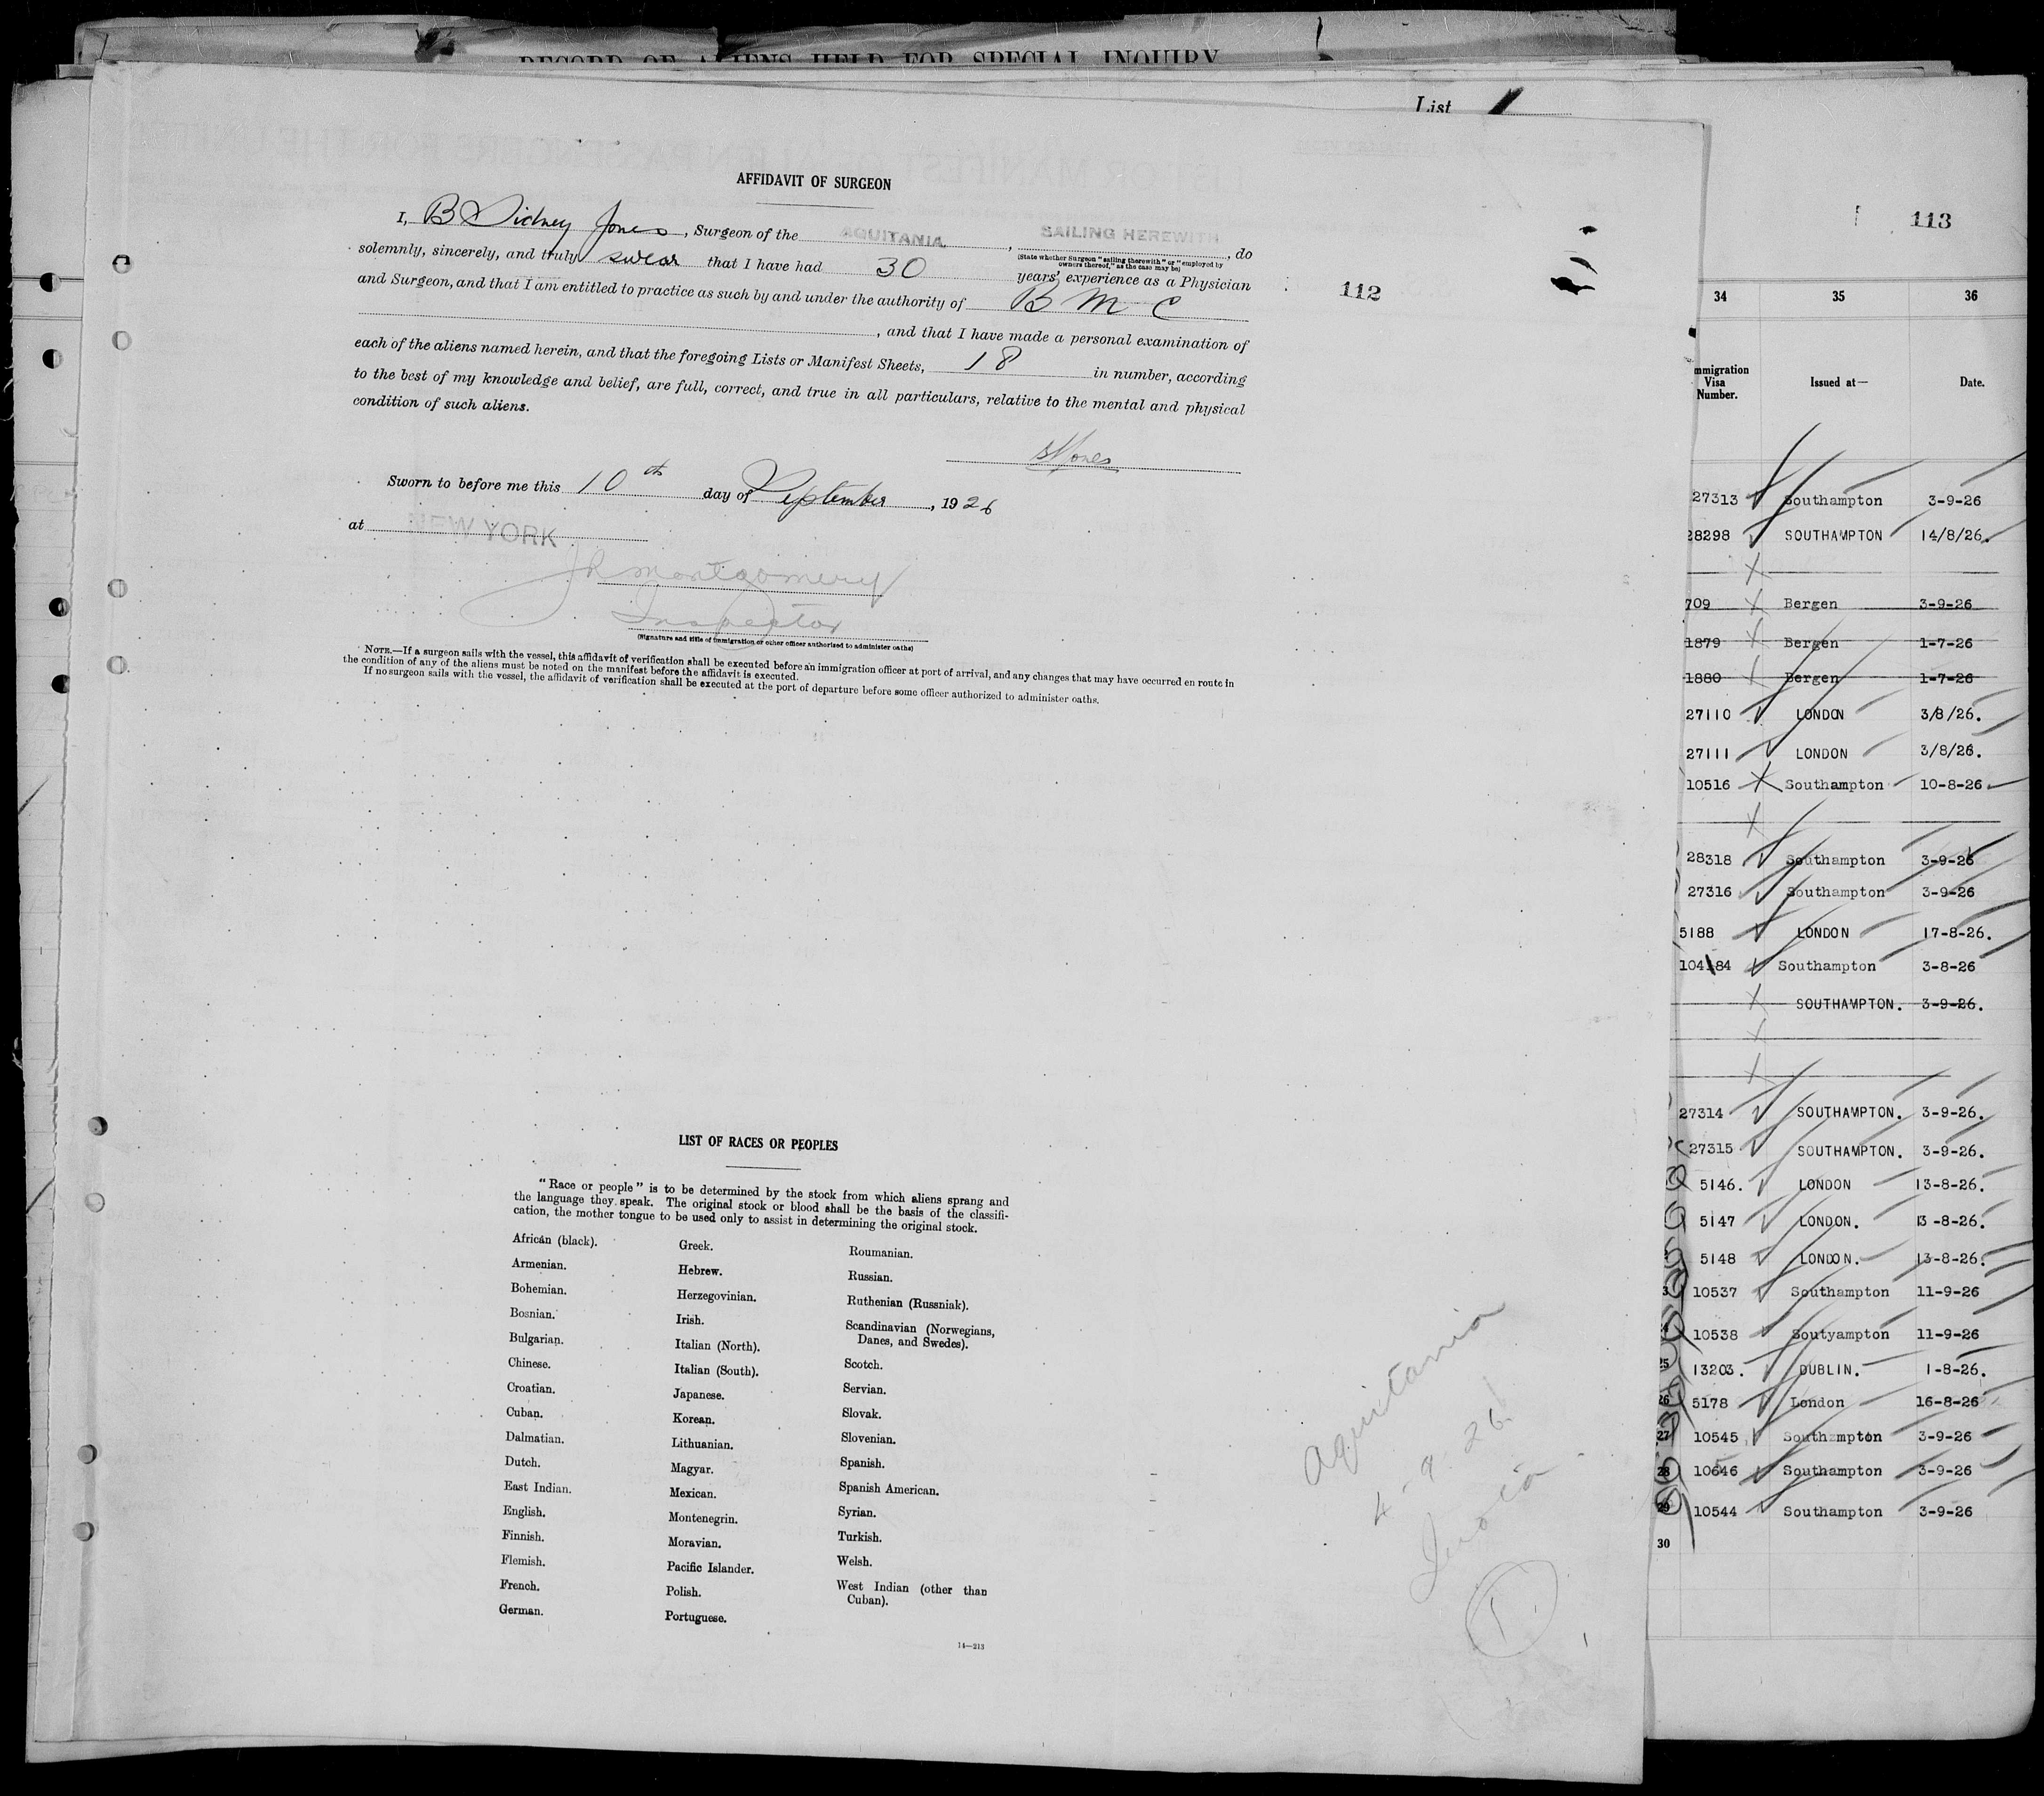 RECORD OF ALIENS HELD FOR SPECIAL INQUIRY
List
113
112
AFFIDAVIT OF SURGEON
I, B Sidney Jones, Surgeon of the AQUITANIA, SAILING HEREWITH, do
(State whether Surgeon "sailing therewith" or "employed by
owners thereof," as the case may be)
solemnly, sincerely, and truly swear that I have had 30 years' experience as a Physician
and Surgeon, and that I am entitled to practice as such by and under the authority of B M C
, and that I have made a personal examination of
each of the aliens named herein, and that the foregoing Lists or Manifest Sheets, 18 in number, according
to the best of my knowledge and belief, are full, correct, and true in all particulars, relative to the mental and physical
condition of such aliens.
Sworn to before me this 10th day of September, 1926
at NEW YORK
J R Montgomery
Inspector
(Signature and title of immigration or other officer authorized to administer oaths)
NOTE.—If a surgeon sails with the vessel, this affidavit of verification shall be executed before an immigration officer at port of arrival, and any changes that may have occurred en route in
the condition of any of the aliens must be noted on the manifest before the affidavit is executed.
If no surgeon sails with the vessel, the affidavit of verification shall be executed at the port of departure before some officer authorized to administer oaths.
LIST OF RACES OR PEOPLES
"Race or people" is to be determined by the stock from which aliens sprang and
the language they speak. The original stock or blood shall be the basis of the classifi-
cation, the mother tongue to be used only to assist in determining the original stock.
African (black).
Armenian.
Bohemian.
Bosnian.
Bulgarian.
Chinese.
Croatian.
Cuban.
Dalmatian.
Dutch.
East Indian.
English.
Finnish.
Flemish.
French.
German.
Greek.
Hebrew.
Herzegovinian.
Irish.
Italian (North).
Italian (South).
Japanese.
Korean.
Lithuanian.
Magyar.
Mexican.
Montenegrin.
Moravian.
Pacific Islander.
Polish.
Portuguese.
Roumanian.
Russian.
Ruthenian (Russniak).
Scandinavian (Norwegians,
Danes, and Swedes).
Scotch.
Servian.
Slovak.
Slovenian.
Spanish.
Spanish American.
Syrian.
Turkish.
Welsh.
West Indian (other than
Cuban).
14—213
Aquitania
4-9-26
1
34 35 36
mmigration
Visa
Number.
Issued at—
Date.
27313 Southampton 3-9-26
28298 SOUTHAMPTON 14/8/26.
709 Bergen 3-9-26
1879 Bergen 1-7-26
1880 Bergen 1-7-26
27110 LONDON 3/8/26.
27111 LONDON 3/8/26.
10516 Southampton 10-8-26
28318 Southampton 3-9-26
27316 Southampton 3-9-26
5188 LONDON 17-8-26.
104184 Southampton 3-8-26
SOUTHAMPTON. 3-9-26.
27314 SOUTHAMPTON. 3-9-26.
27315 SOUTHAMPTON. 3-9-26.
5146. LONDON 13-8-26.
5147 LONDON. 13-8-26.
5148 LONDON. 13-8-26.
10537 Southampton 11-9-26
10538 Soutyampton 11-9-26
25 13203. DUBLIN. 1-8-26.
26 5178 London 16-8-26
27 10545 Southzmpton 3-9-26
28 10646 Southampton 3-9-26
29 10544 Southampton 3-9-26
30